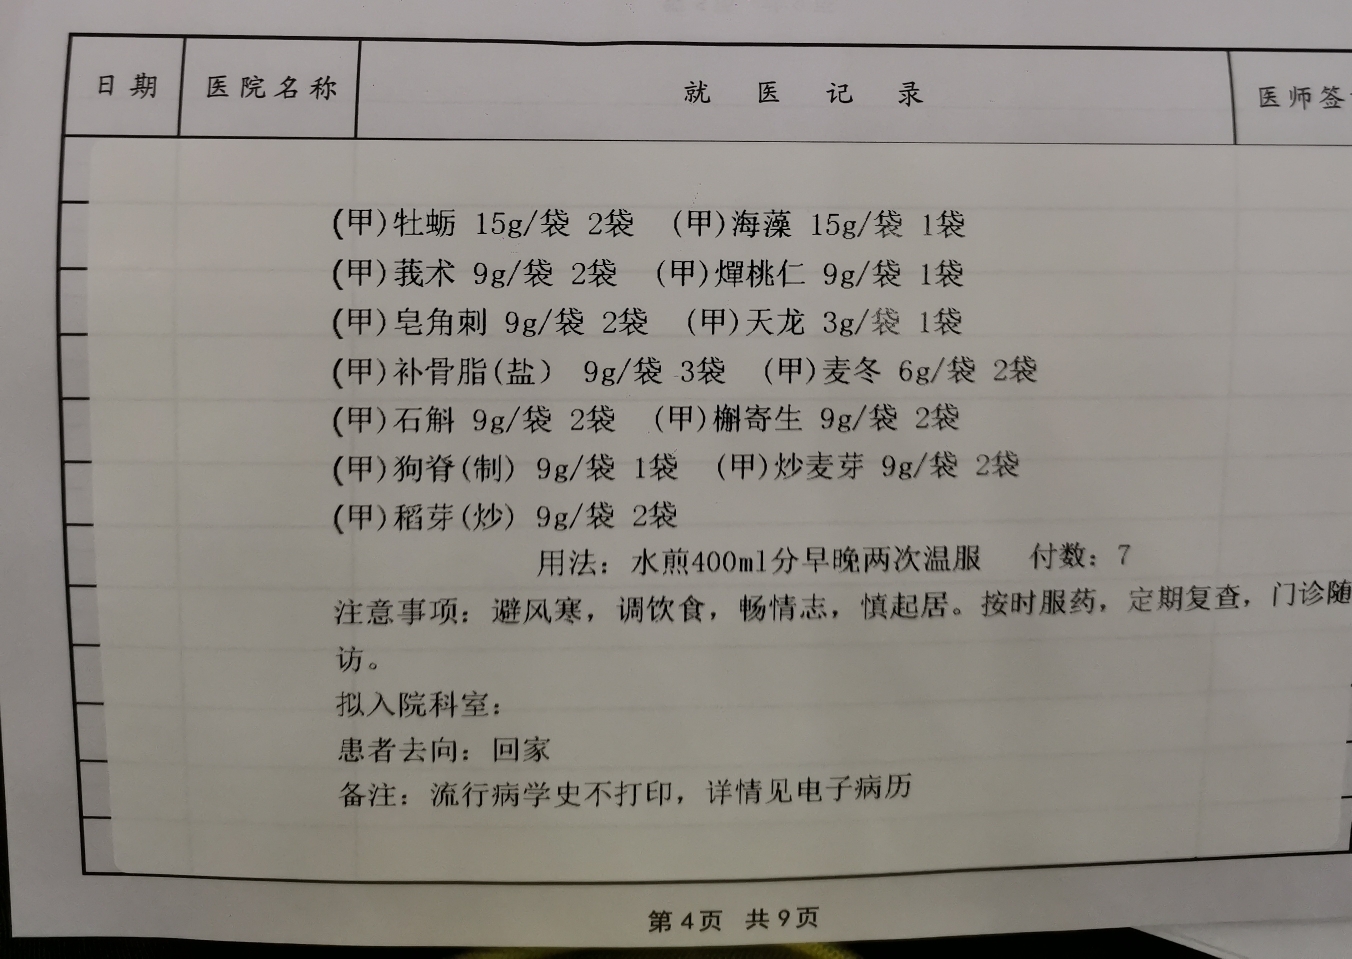 日期 医院名称 就医记录 医师签
(甲)牡蛎 15g/袋 2袋 (甲)海藻 15g/袋 1袋
(甲)莪术 9g/袋 2袋 (甲)燀桃仁 9g/袋 1袋
(甲)皂角刺 9g/袋 2袋 (甲)天龙 3g/袋 1袋
(甲)补骨脂(盐) 9g/袋 3袋 (甲)麦冬 6g/袋 2袋
(甲)石斛 9g/袋 2袋 (甲)槲寄生 9g/袋 2袋
(甲)狗脊(制) 9g/袋 1袋 (甲)炒麦芽 9g/袋 2袋
(甲)稻芽(炒) 9g/袋 2袋
用法：水煎400ml分早晚两次温服 付数：7
注意事项：避风寒，调饮食，畅情志，慎起居。按时服药，定期复查，门诊随
访。
拟入院科室：
患者去向：回家
备注：流行病学史不打印，详情见电子病历
第4页 共9页